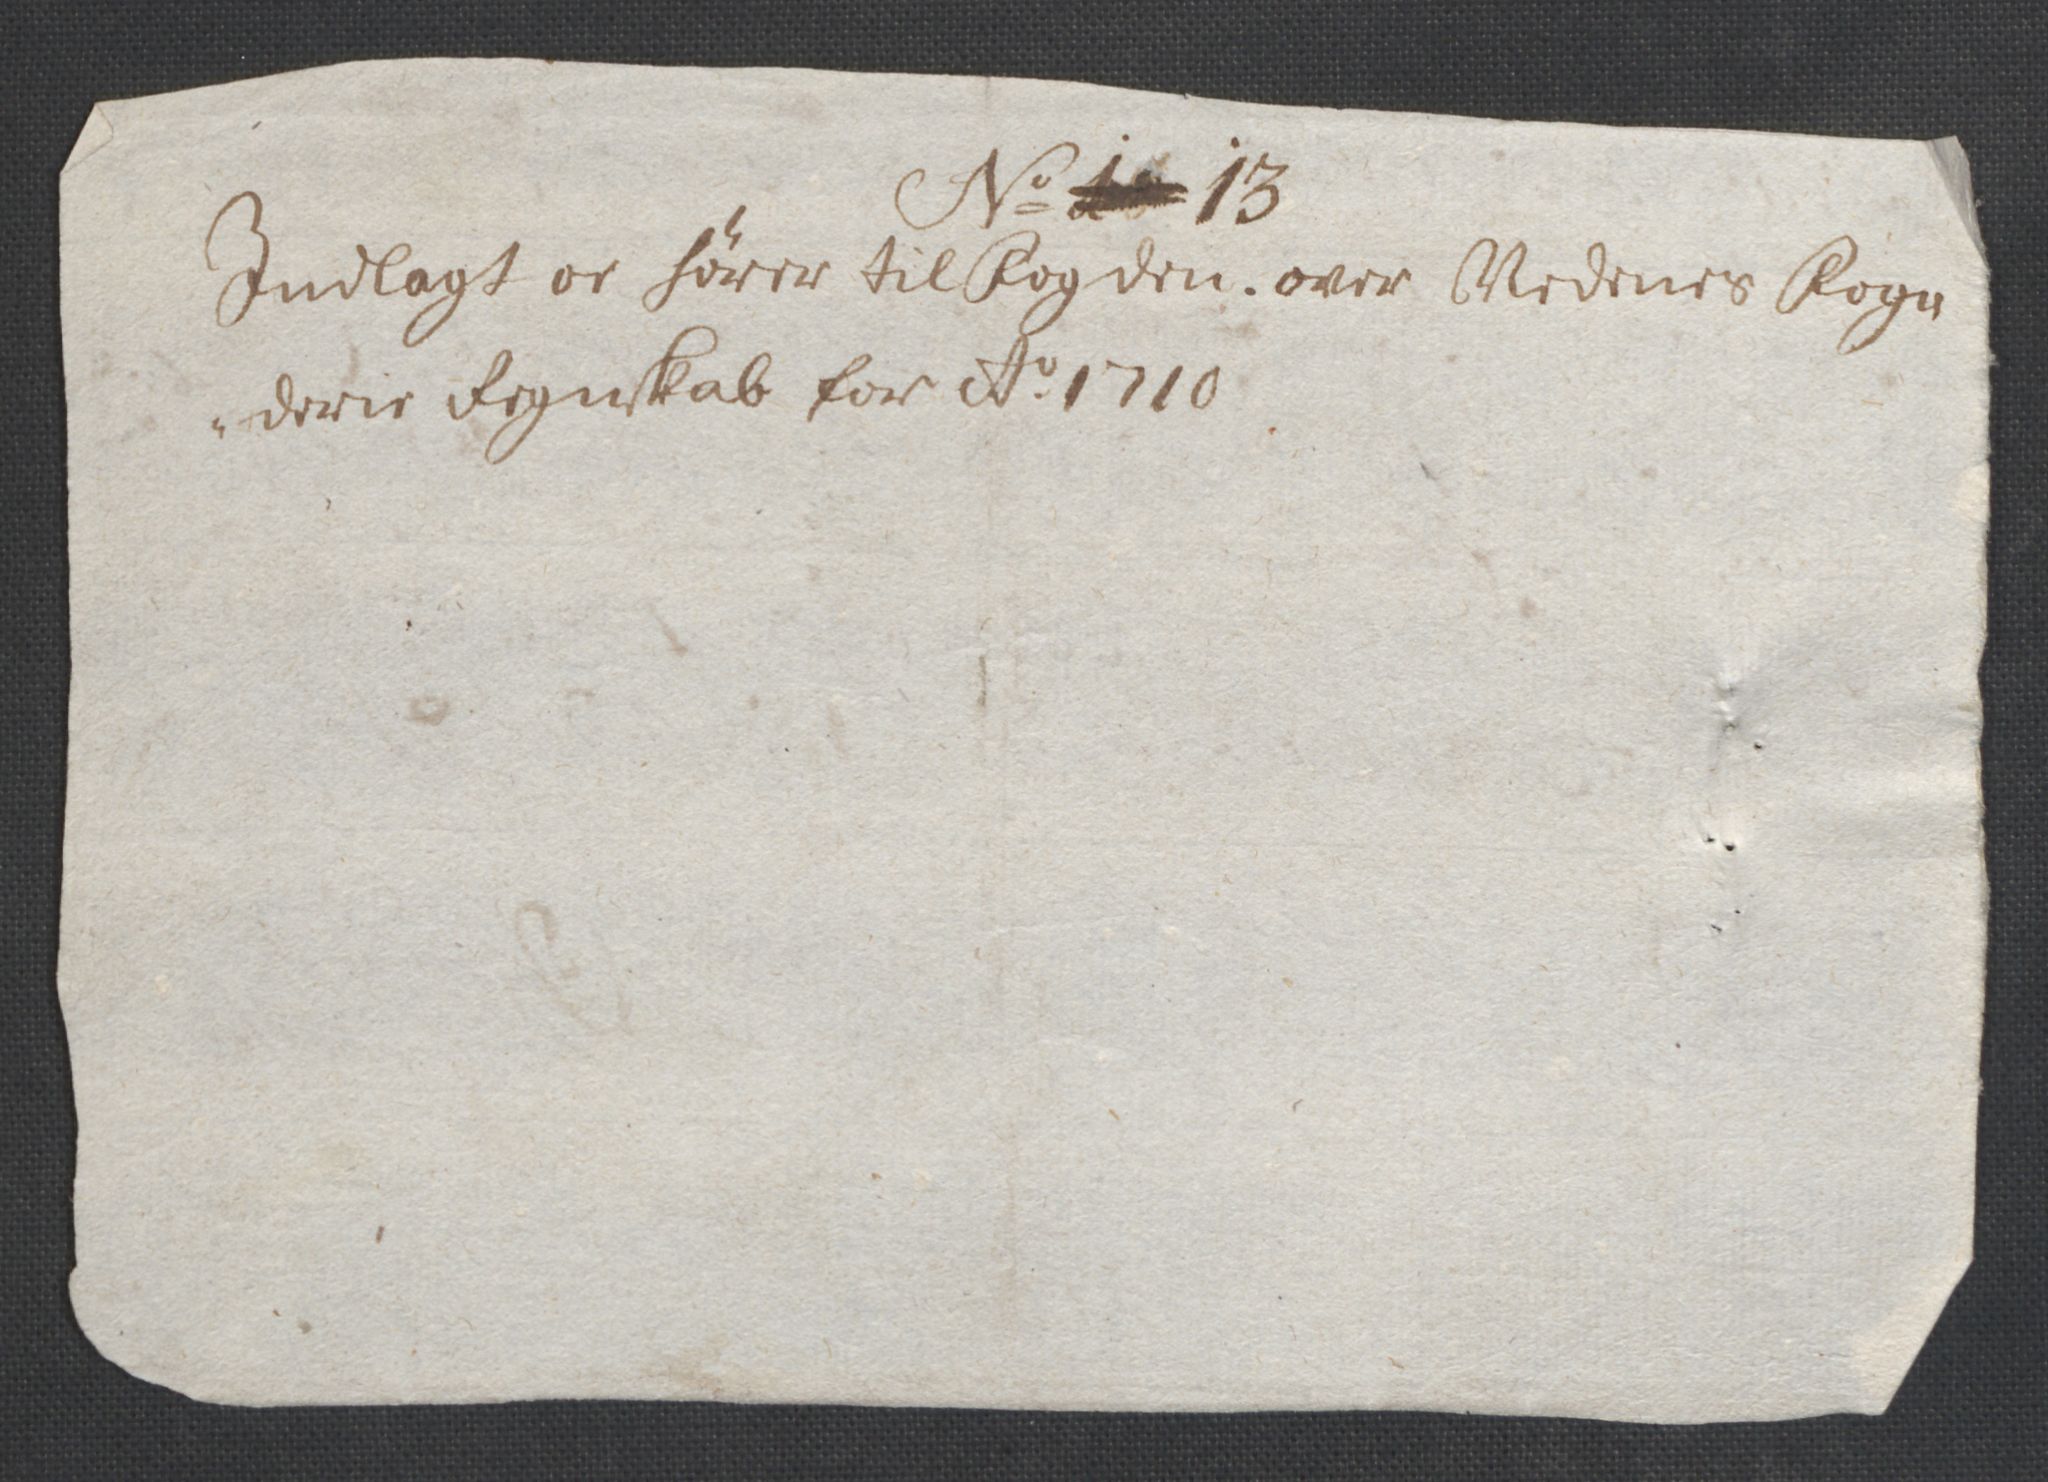 No 13
Indlagt oc hörer til Fogden. over Nedenes Fog„
„derie Regnskab for Ao. 1710